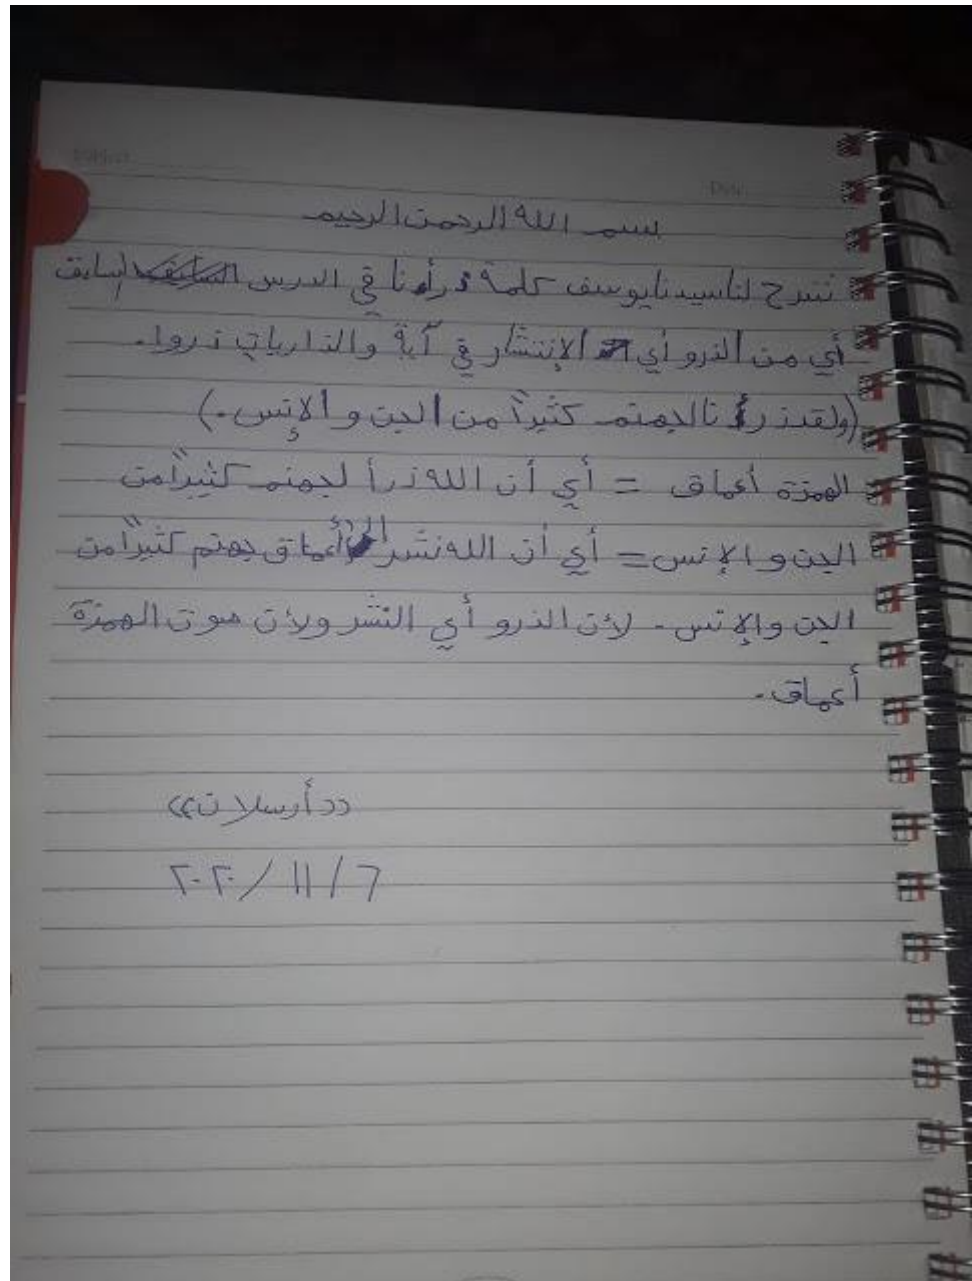 بسم الله الرحمن الرحيم
نشرح لنا سيدنا يوسف كلمة ذرأنا في الدرس السابق
أي من الذرو أي الإنتشار في آية والذاريات ذروا.
(ولقد ذرأنا لجهنم كثيراً من الجن و الإنس.)
الهمزة أعماق = أي أن الله ذرأ لجهنم كثيراً من
الجن و الإنس = أي أن الله نشر لأعماق جهنم كثيراً من
الجن والإنس. لأن الذرو أي النشر ولأن صوت الهمزة
أعماق.
((أرسلان))
٦ / ١١ / ٢٠٢٠